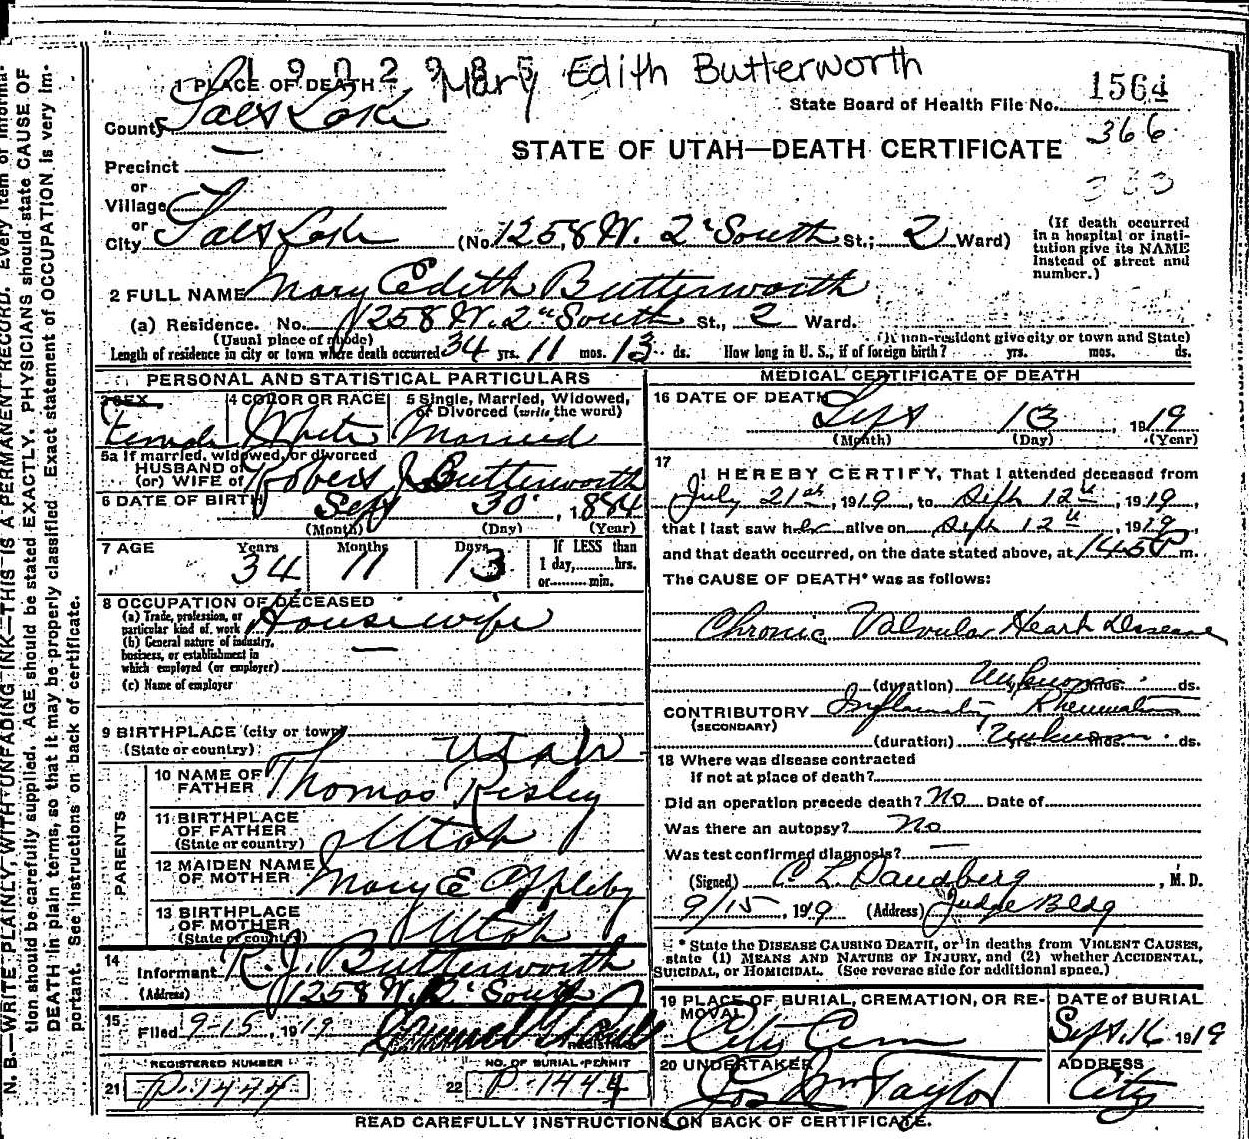 1902985
Mary Edith Butterworth
1 PLACE OF DEATH
State Board of Health File No. 1564
County Salt Lake
366
STATE OF UTAH—DEATH CERTIFICATE
Precinct —
or
Village
or
City Salt Lake (No. 1258 W. 2d South St.; 2 Ward)
(If death occurred in a hospital or institution give its NAME instead of street and number.)
2 FULL NAME Mary Edith Butterworth
(a) Residence. No. 1258 W. 2nd South St., 2 Ward.
(Usual place of abode) (If non-resident give city or town and State)
Length of residence in city or town where death occurred 34 yrs. 11 mos. 13 ds. How long in U. S., if of foreign birth? yrs. mos. ds.
PERSONAL AND STATISTICAL PARTICULARS
3 SEX 4 COLOR OR RACE 5 Single, Married, Widowed, or Divorced (write the word)
Female White Married
5a If married, widowed, or divorced
HUSBAND of
(or) WIFE of Robert J. Butterworth
6 DATE OF BIRTH Sept 30 , 1884
(Month) (Day) (Year)
7 AGE Years Months Days If LESS than
34 11 13 1 day, hrs.
or min.
8 OCCUPATION OF DECEASED
(a) Trade, profession, or particular kind of work Housewife
(b) General nature of industry, business, or establishment in which employed (or employer) —
(c) Name of employer
9 BIRTHPLACE (city or town)
(State or country) Utah
PARENTS
10 NAME OF FATHER Thomas Risley
11 BIRTHPLACE OF FATHER
(State or country) Utah
12 MAIDEN NAME OF MOTHER Mary E Appleby
13 BIRTHPLACE OF MOTHER
(State or country) Utah
14 Informant R. J. Butterworth
(Address) 1258 W. 2d South
15 Filed 9-15, 1919
REGISTRAR
REGISTERED NUMBER NO. OF BURIAL PERMIT
21 P-1444 22 P-1444
MEDICAL CERTIFICATE OF DEATH
16 DATE OF DEATH
Sept 13 , 1919
(Month) (Day) (Year)
17 I HEREBY CERTIFY, That I attended deceased from
July 21st, 1919, to Sept 12th, 1919,
that I last saw her alive on Sept 12th, 1919,
and that death occurred, on the date stated above, at 1:45 P m.
The CAUSE OF DEATH* was as follows:
Chronic Valvular Heart Disease
(duration) Unknown yrs. mos. ds.
CONTRIBUTORY Inflammatory Rheumatism
(SECONDARY)
(duration) Unknown yrs. mos. ds.
18 Where was disease contracted
if not at place of death?
Did an operation precede death? No Date of
Was there an autopsy? No
Was test confirmed diagnosis? —
(Signed) C L Sandberg, M. D.
9/15, 1919 (Address) Judge Bldg
* State the DISEASE CAUSING DEATH, or in deaths from VIOLENT CAUSES,
state (1) MEANS AND NATURE OF INJURY, and (2) whether ACCIDENTAL,
SUICIDAL, or HOMICIDAL. (See reverse side for additional space.)
19 PLACE OF BURIAL, CREMATION, OR REMOVAL DATE OF BURIAL
City Cem Sept. 16 1919
20 UNDERTAKER ADDRESS
Jos Wm Taylor City
READ CAREFULLY INSTRUCTIONS ON BACK OF CERTIFICATE.
N. B.—WRITE PLAINLY, WITH UNFADING INK—THIS IS A PERMANENT RECORD. Every item of informa-
tion should be carefully supplied. AGE should be stated EXACTLY. PHYSICIANS should state CAUSE OF
DEATH in plain terms, so that it may be properly classified. Exact statement of OCCUPATION is very im-
portant. See instructions on back of certificate.